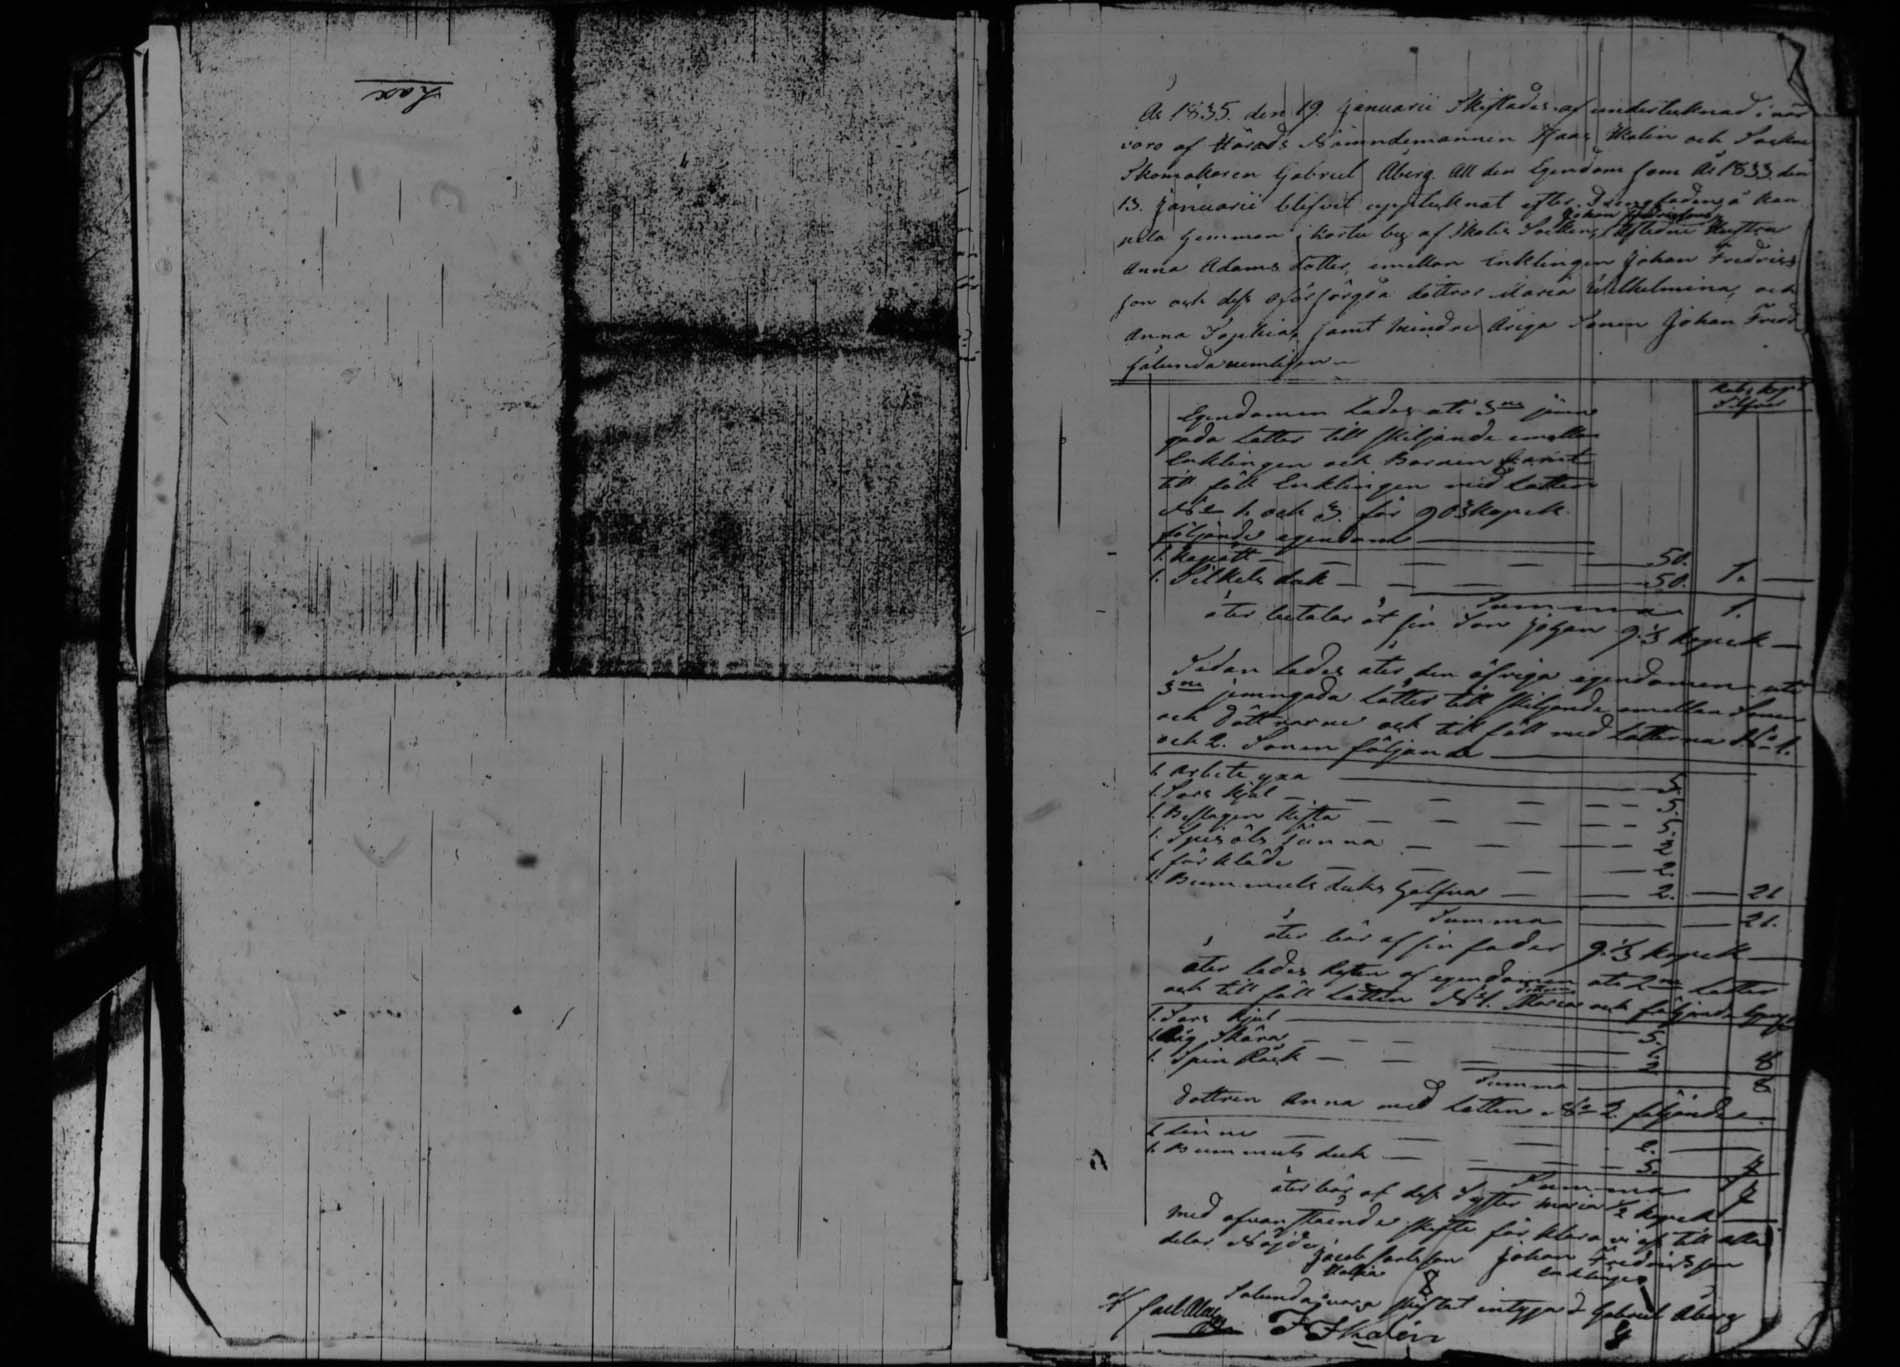 Lax
År 1835. den 19. Januarii Skiftades af undertecknad i när
varo af Härads Nämndemannen Isaac Skalin och Sockne
Skomakaren Gabriel Åberg. All den Egendom som År 1833 den
13. Januarii blifvit upptecknat efter
Johan Fredricssons
af Socken, Afledne Hustru
Anna Adams dotter, emellan Enklingen Johan Fredrics
son och dess oförsörgda döttrar Maria Wilhelmina, och
Anna Sophia, samt Minder Åriga Sonen Johan Fred
sålunda nemligen
Rub. kop.
Silfver
Egendomen Lades uti 3ne jemn
goda Lotter till skiljande emellan
Enklingen och Barnen samt
till föll Enklingen med Lotten
No 1. och 3. för 90⅓ kopek
följande egendom
1. Kapott 50.
1. Silkes duk 50. 1.
Summa 1.
åter betalar åt sin Son Johan 9.⅓ kopek
Sedan lades åter den öfriga egendomen uti
3ne jemngoda Lotter till skiljande emellan Sonen
och döttrarne och till föll med Lotterna No 1.
och 2. Sonen följande
1. Arbets yxa 5.
1. Sors kjol 5.
1. Beslagen Kista 5.
1. Spisöls kanna 2.
1. förkläde 2.
1. Bummuls duks Halfva 2. 21
Summa 21.
åter bär af sin fader 9.⅓ kopek
åter lades Resten af egendomen uti 2ne Lotter
dottren
och till föll Lotten No 1. Maria och följande
1. Sors kjol 5.
1. Råg Skära 1.
1. Spin Råck 2. 8
Summa 8
dottren Anna med Lotten No 2. följande
1. Linne 2.
1. Bummuls duk 5. 7
Summa 7
åter bär af dess Syster Maria ½ kopek
Med ofvanstående skifte förklara vi oss till alla
delar Nöjde
Jacob Carlsson Johan Fredricsson
Enklingen
Sålunda vara skiftat intyga Gabriel Åberg
I Skalin